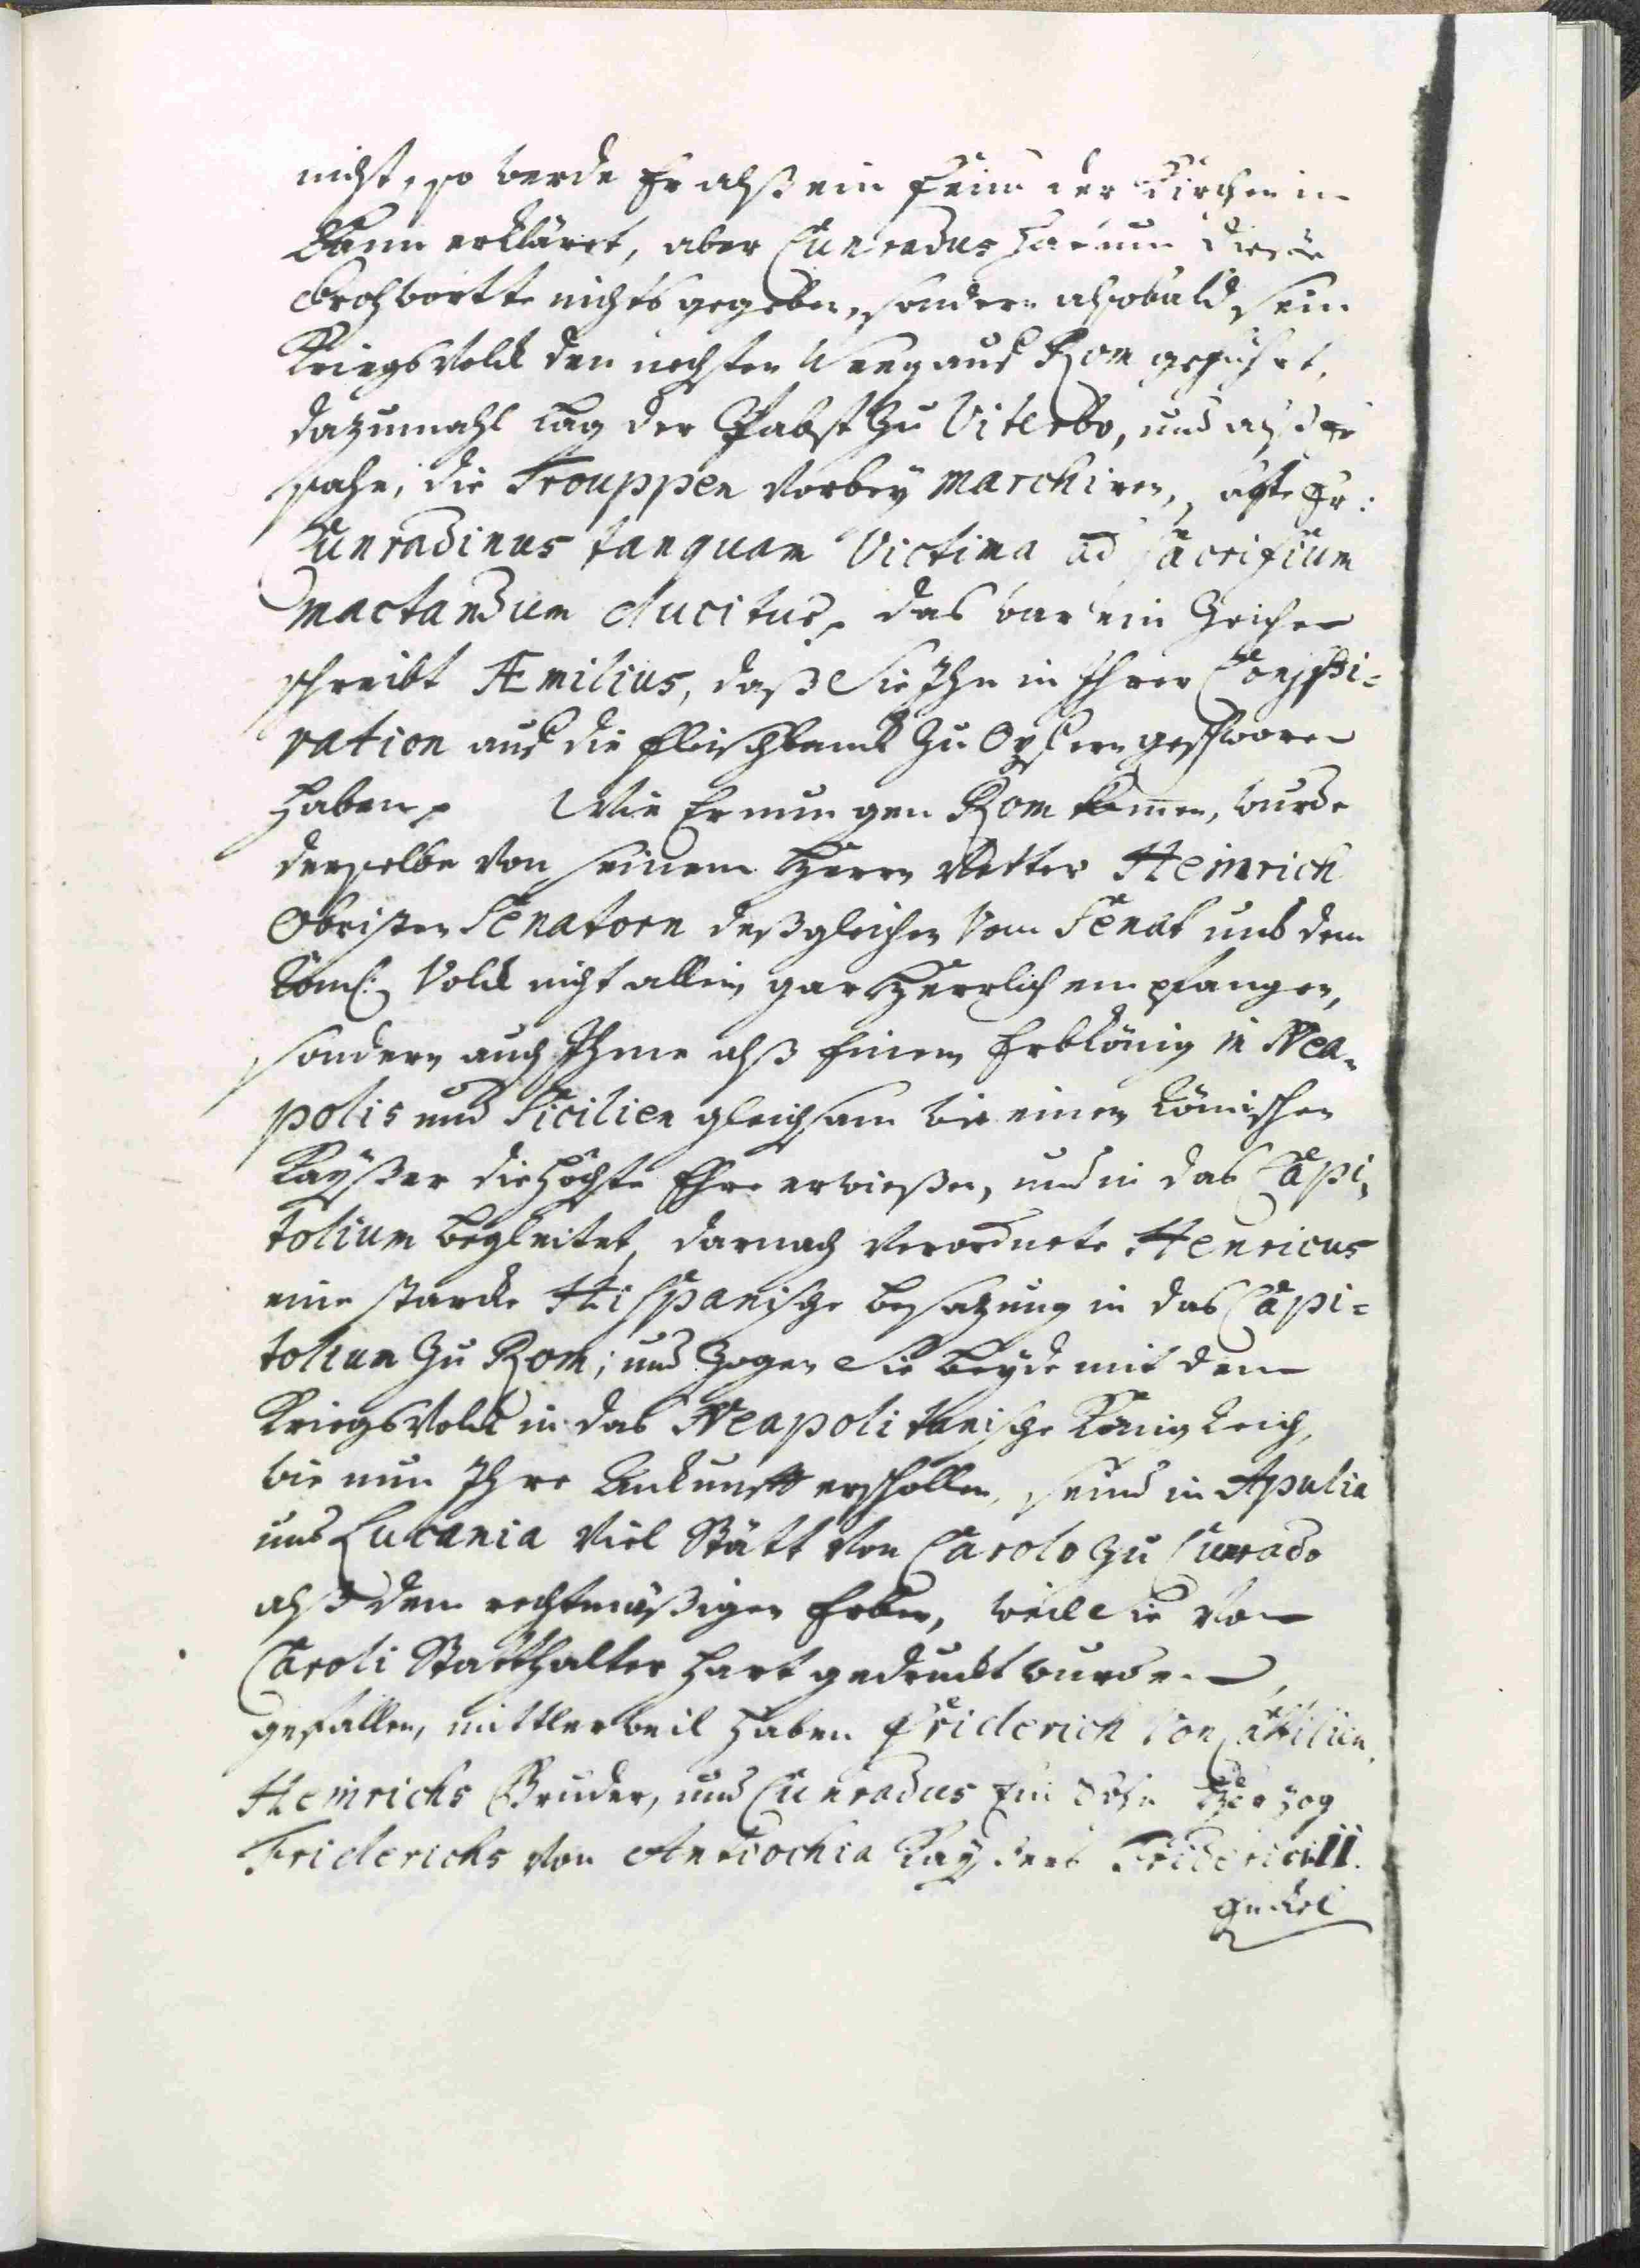 nicht, so werde Er alß ein Feind der Kirchen in
Bann erkläret, aber Cunradus hat um diese
Drohwortte nichts gegeben, sondern alsobald sein
Kriegs Volck den nechsten Weeg auf Rom geführt,
dazumahl lag der Pabst zu Viterbo, und alß Er
sahe, die Trouppen vorbey marchiren, sagte Er:
Cunradinus tanquam Victima ad sacrificium
mactandum ducitur, das war ein Zeichen
schreibt Æmilius, daß Sie Ihn in Ihrer Conspi=
ration auf die Fleischbanck zu Opfern geschworen
haben, Wie Er nun gen Rom kommen, wurde
derselbe von seinem Herrn Vetter Heinrich
Obristen Senatorn deßgleichen vom Senat und dem
Röm: Volck nicht allein gar Herrlich empfangen,
sondern auch Ihme alß Einem Erbkönig in Nea=
polis und Sicilien gleichsam wie einem Römischen
Kayßer die Höchste Ehre erwießen, und in das Capi=
tolium begleitet, darnach verordnete Henricus
eine starcke Hispanische besazung in das Capi=
tolium zu Rom; und Zogen Sie beyde mit dem
Kriegs Volck in das Neapolitanische Königreich,
wie nun Ihre Ankunfft erschollen, seind in Apulia
und Lucania viel Stätt von Carolo zu Cunrado
alß dem rechtmäßigen Erben, weil Sie von
Caroli Statthalter hart gedruckt wurden,
gefallen, mittlerweil haben Friderich von Castilien,
Heinrichs Bruder, und Cunradus Ein Sohn Herzog
Friderichs von Antiochia Kaysers Friderici II.
Enckel